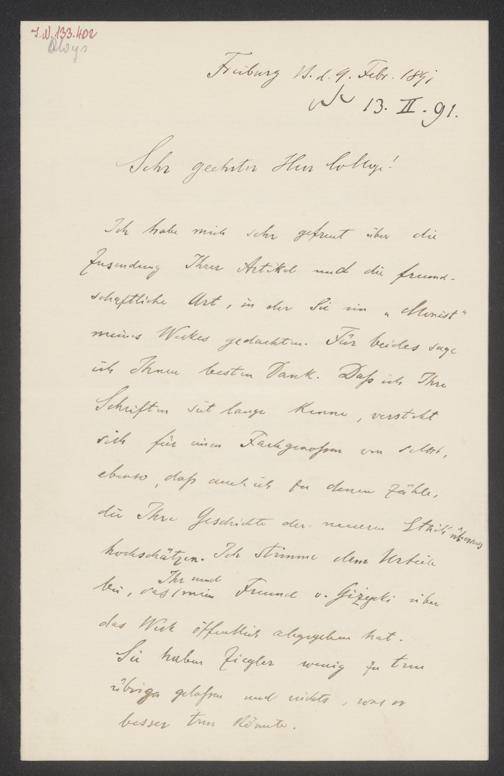 I.N. 133.402
Aloys
Freiburg i/B. d. 9. Febr. 1891
13. II. 91.
Sehr geehrter Herr College!
Ich habe mich sehr gefreut über die
Zusendung Ihrer Artikel und die freund-
schaftliche Art, in der Sie im „Monist"
meines Werkes gedachten. Für beides sage
ich Ihnen besten Dank. Daß ich Ihre
Schriften seit lange kenne, versteht
sich für einen Fachgenossen von selbst,
ebenso, daß auch ich zu denen zähle,
die Ihre Geschichte der neueren Ethik überaus
hochschätzen. Ich stimme dem Urteile
bei, das Ihr und mein Freund v. Giżycki über
das Werk öffentlich abgegeben hat.
Sie haben Ziegler wenig zu tun
übrig gelassen und nichts, was er
besser tun könnte.